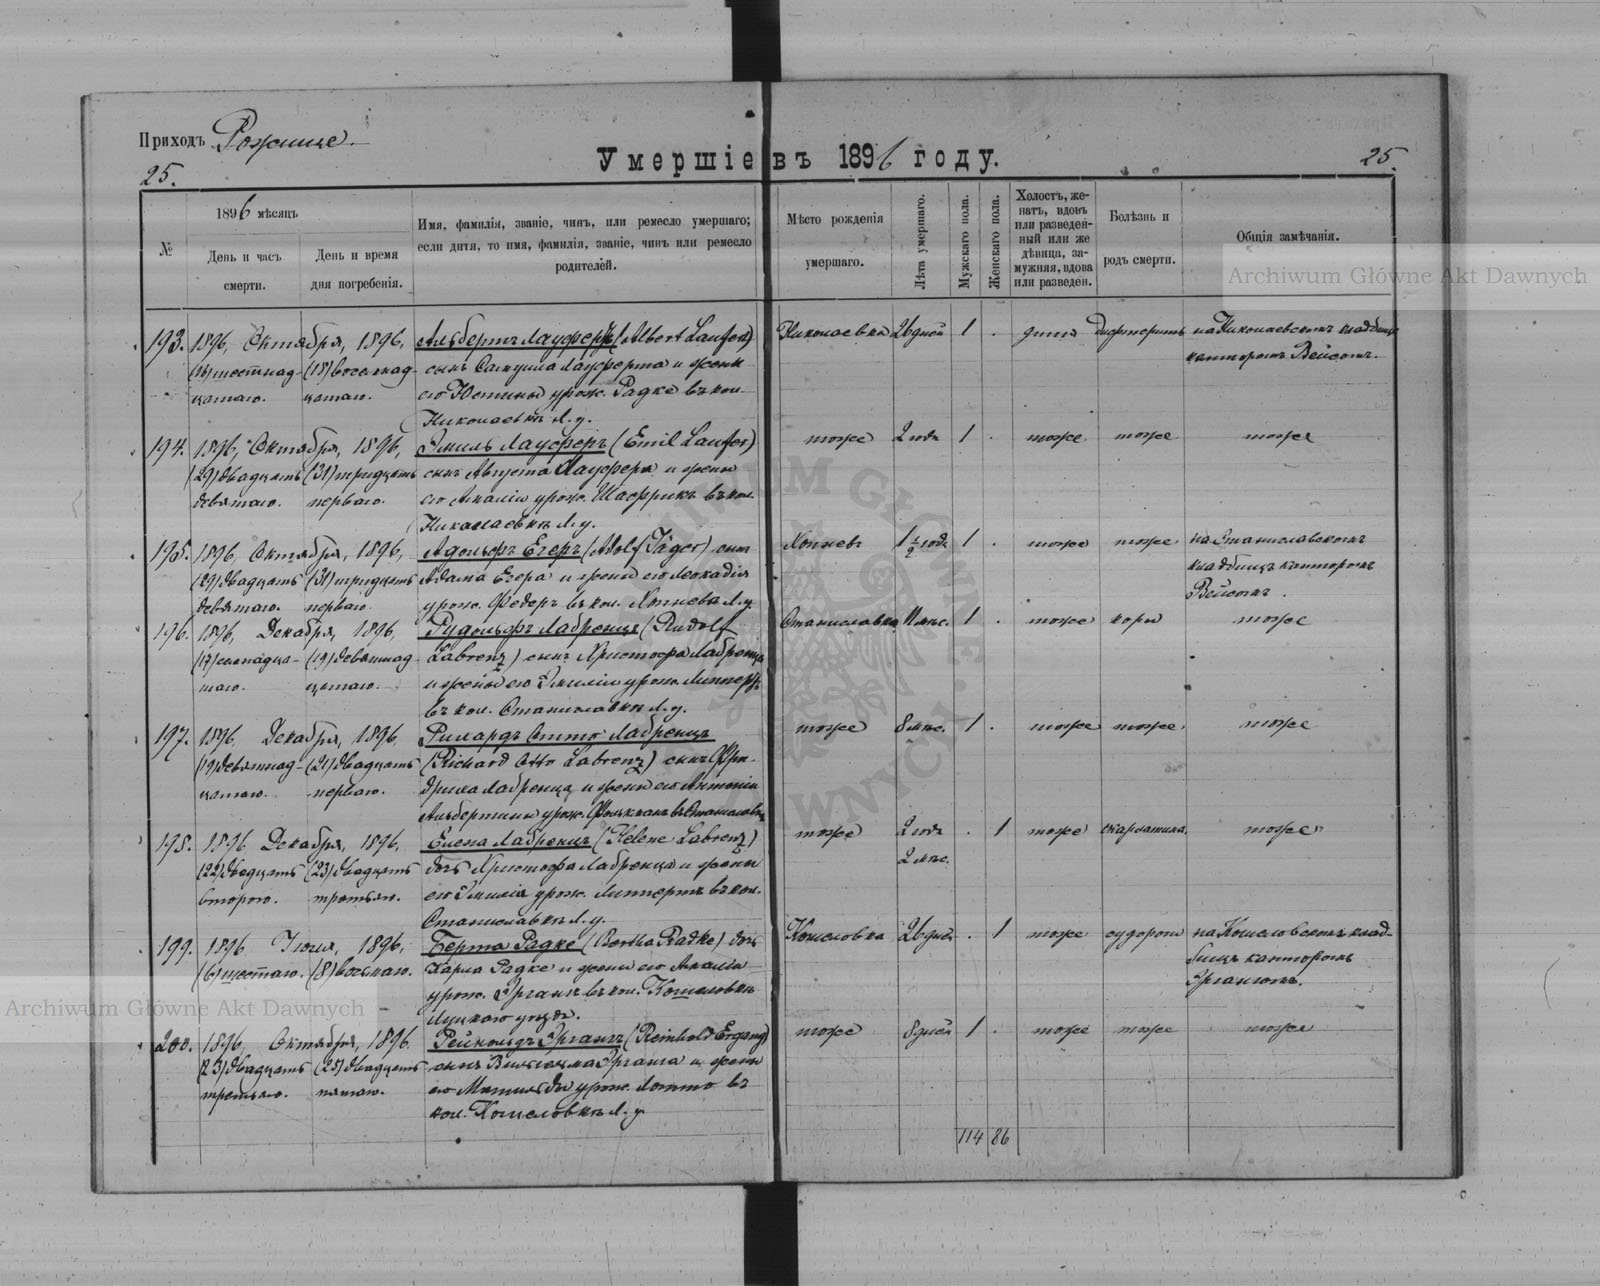 Приходъ Рожище.
Умершіе въ 1896 году.
25.
25.
№
1896 мѣсяцъ
День и часъ
смерти.
День и время
дня погребенія.
Имя, фамилія, званіе, чинъ, или ремесло умершаго;
если дитя, то имя, фамилія, званіе, чинъ или ремесло
родителей.
Мѣсто рожденія
умершаго.
Лѣта умершаго.
Мужскаго пола.
Женскаго пола.
Холостъ, же-
натъ, вдовъ
или разведен-
ный или же
дѣвица, за-
мужняя, вдова
или разведен.
Болѣзнь и
родъ смерти.
Общія замѣчанія.
Archiwum Główne Akt Dawnych
193. 1896, Октября, 1896, Альбертъ Лауферъ (Albert Laufer) Николаевка 26 дней 1 . дитя дифтеритъ на Николаевскомъ кладбищѣ
(16) шестнад- (18) восемнад- сынъ Самуила Лауферта и жены канторомъ Вейсомъ.
цатаго. цатаго. его Юстины урож. Радке въ кол.
Николаевкѣ Л. у.
194. 1896, Октября, 1896, Эмиль Лауферъ (Emil Laufer) тоже 2 года 1 . тоже тоже тоже
(29) двадцать (31) тридцать сынъ Августа Лауфера и жены
девятаго. перваго. его Амаліи урож. Шафрикъ въ кол.
Николаевкѣ Л. у.
195. 1896, Октября, 1896, Адольфъ Егеръ (Adolf Jäger) сынъ Копчевъ 1 1/2 года 1 . тоже тоже на Станиславскомъ
(29) двадцать (31) тридцать Адама Егера и жены его Леокадіи кладбищѣ канторомъ
девятаго. перваго. урож. Федеръ въ кол. Л. у. Вейсомъ.
196. 1896, Декабря, 1896, Рудольфъ Лабренцъ (Rudolf Станиславка 11 мѣс. 1 . тоже корь тоже
(17) семнадца- (19) девятнад- Labrenz) сынъ Христофа Лабренца
таго. цатаго. и жены его Эмиліи урож. Липпертъ
въ кол. Станиславкѣ Л. у.
197. 1896, Декабря, 1896 Рихардъ Отто Лабренцъ тоже 8 мѣс. 1 . тоже тоже. тоже
(19) девятнад- (21) двадцать (Richard Otto Labrenz) сынъ Фри-
цатаго. перваго. дриха Лабренца и жены его Антоніи
Альбертины урож. въ Станиславкѣ
198. 1896, Декабря, 1896, Елена Лабренцъ (Helene Labrenz) тоже 2 года . 1 тоже скарлатина тоже
(22) двадцать (23) двадцать дочь Христофа Лабренца и жены 2 мѣс.
второго. третьяго. его Эмиліи урож. Липпертъ въ кол.
Станиславкѣ Л. у.
199. 1896 Іюля, 1896, Берта Радке (Bertha Radke) дочь Кошеловка 26 дней . 1 тоже судороги на Кошеловскомъ клад-
(6) шестаго. (8) восьмаго. Карла Радке и жены его Амаліи бищѣ канторомъ
урож. Эргангъ въ кол. Кошеловкѣ Эргангомъ.
Луцкаго уѣзда.
Archiwum Główne Akt Dawnych
200. 1896, Октября, 1896. Рейнольдъ Эргангъ (Reinhold Ergang) тоже 8 дней 1 . тоже тоже тоже
(23) двадцать (25) двадцать сынъ Вильгельма Эрганга и жены
третьяго. пятаго. его Матильды урож. Лотто въ
кол. Кошеловкѣ Л. у.
114 86